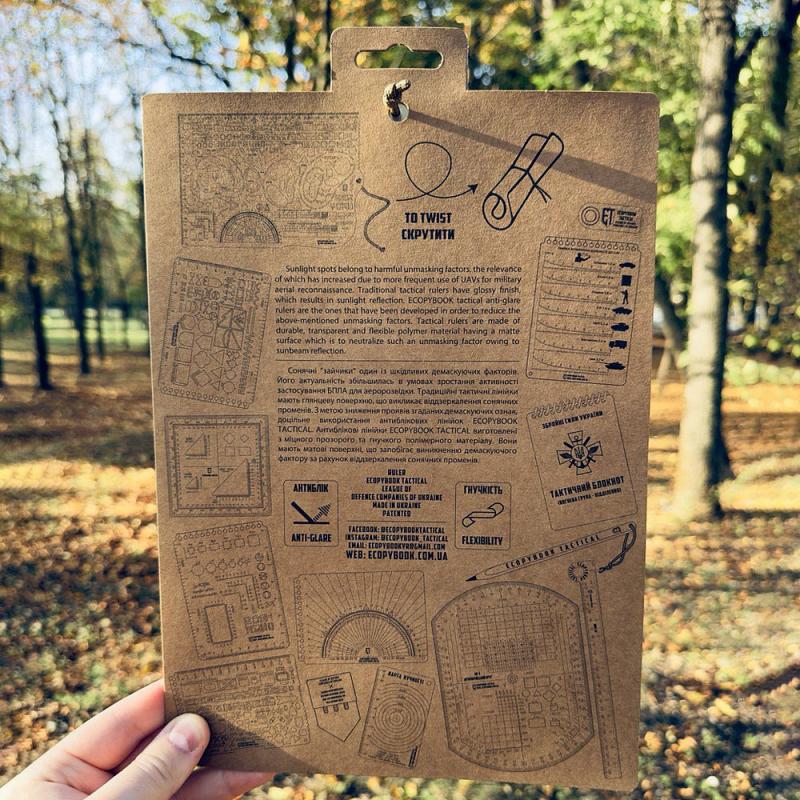 TO TWIST
СКРУТИТИ
ET ECOPYBOOK
TACTICAL
Sunlight spots belong to harmful unmasking factors, the relevance
of which has increased due to more frequent use of UAVs for military
aerial reconnaissance. Traditional tactical rulers have glossy finish,
which results in sunlight reflection. ECOPYBOOK tactical anti-glare
rulers are the ones that have been developed in order to reduce the
above-mentioned unmasking factors. Tactical rulers are made of
durable, transparent and flexible polymer material having a matte
surface which is to neutralize such an unmasking factor owing to
sunbeam reflection.
Сонячні "зайчики" один із шкідливих демаскуючих факторів.
Його актуальність збільшилась в умовах зростання активності
застосування БПЛА для аеророзвідки. Традиційні тактичні лінійки
мають глянцеву поверхню, що викликає віддзеркалення сонячних
променів. З метою зниження проявів згаданих демаскуючих ознак,
доцільне використання антиблікових лінійок ECOPYBOOK
TACTICAL. Антиблікові лінійки ECOPYBOOK TACTICAL виготовлені
з міцного прозорого та гнучкого полімерного матеріалу. Вони
мають матові поверхні, що запобігає виникненню демаскуючого
фактору за рахунок віддзеркалення сонячних променів.
ЗБРОЙНІ СИЛИ УКРАЇНИ
ТАКТИЧНИЙ БЛОКНОТ
(ВОГНЕВА ГРУПА - ВІДДІЛЕННЯ)
RULER
ECOPYBOOK TACTICAL
LEAGUE OF
DEFENCE COMPANIES OF UKRAINE
MADE IN UKRAINE
PATENTED
АНТИБЛІК
ANTI-GLARE
ГНУЧКІСТЬ
FLEXIBILITY
FACEBOOK: @ECOPYBOOKTACTICAL
INSTAGRAM: @ECOPYBOOK_TACTICAL
EMAIL: ECOPYBOOKVR@GMAIL.COM
WEB: ECOPYBOOK.COM.UA
ECOPYBOOK TACTICAL
КАРТА ВЛУЧНОСТІ